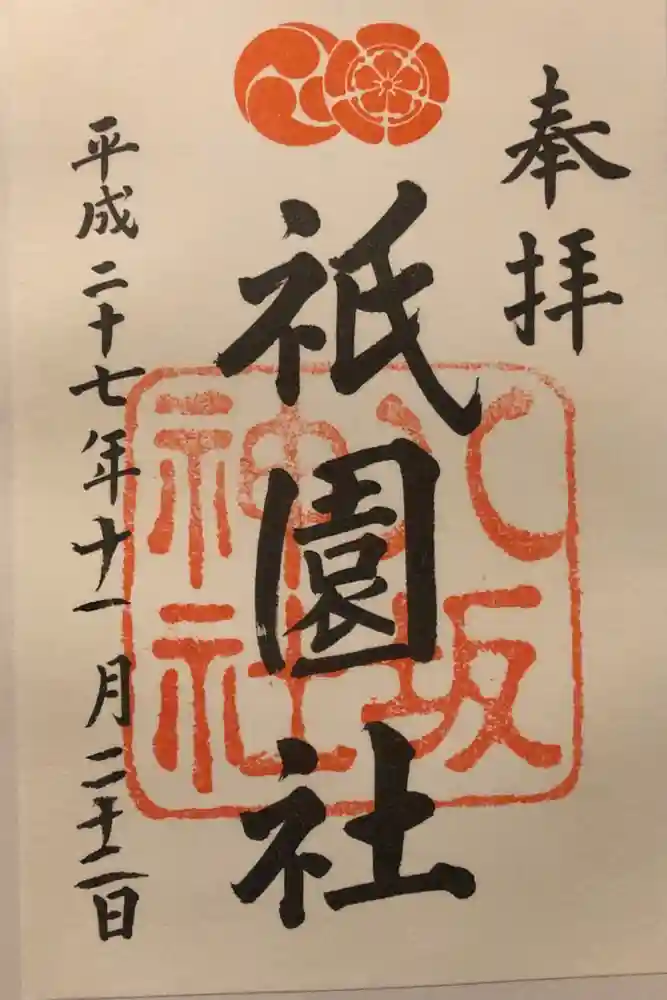 奉拝
祇園社
八坂神社
平成二十七年十一月二十二日